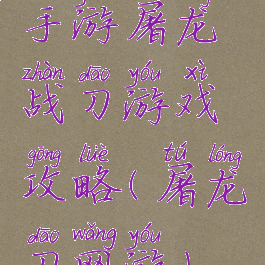 手游屠龙
zhàn dāo yóu xì
战刀游戏
gōng lüè tú lóng
攻略(屠龙
dāo wǎng yóu
刀网游)